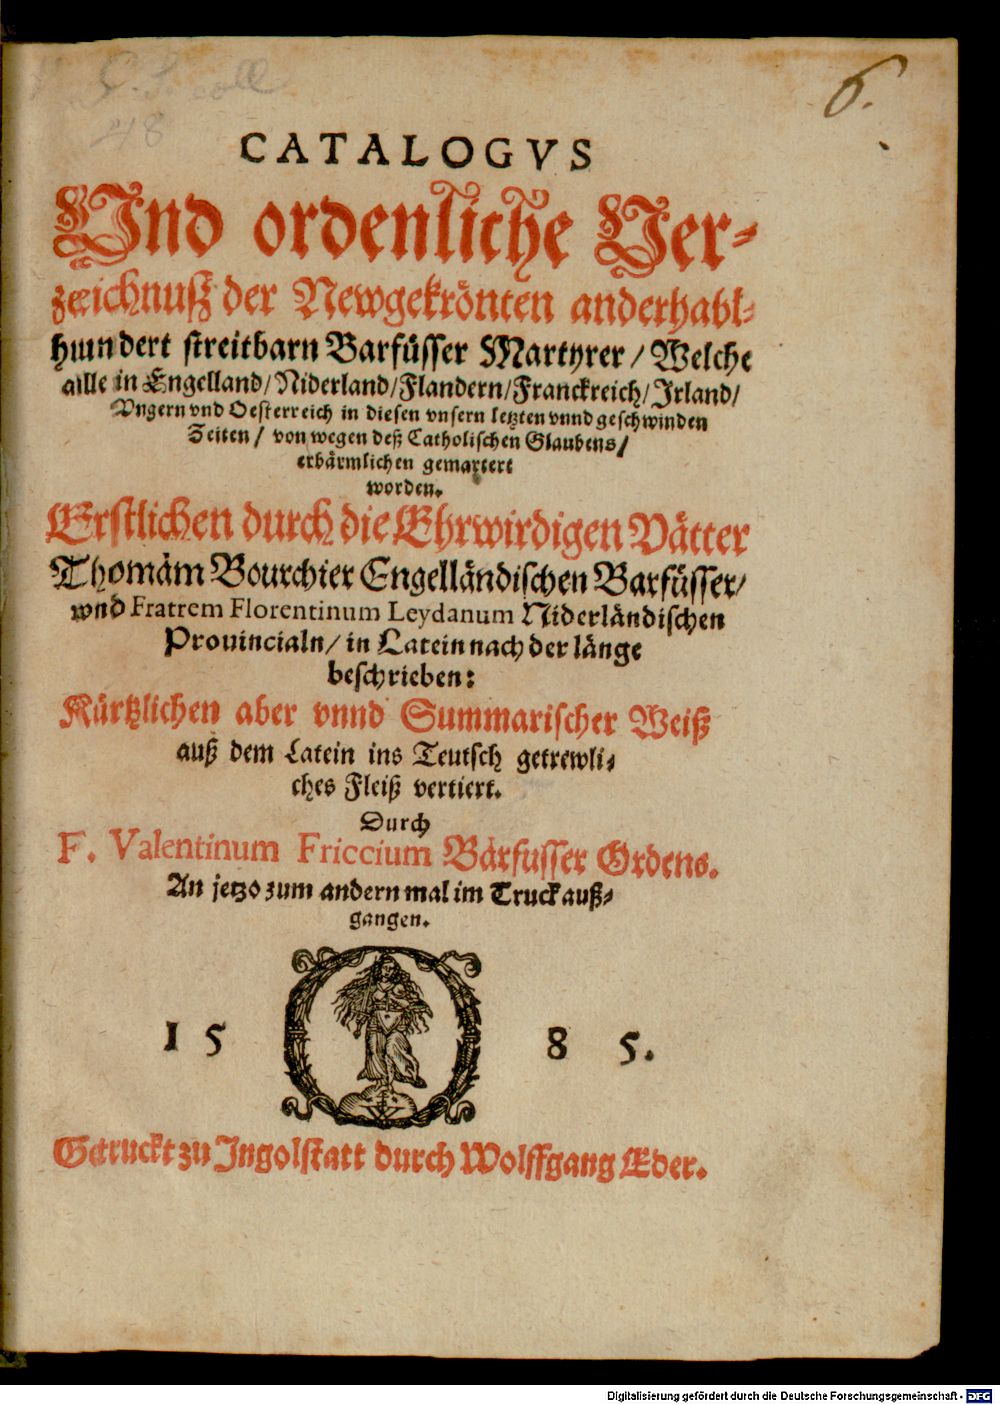 6.
48
CATALOGVS
Vnd ordenliche Ver-
zeichnuß der Newgekrönten anderhabl-
hundert streitbarn Barfüsser Martyrer / Welche
alle in Engelland / Niderland / Flandern / Franckreich / Irland /
Vngern vnd Oesterreich in diesen vnsern letzten vnnd geschwinden
Zeiten / von wegen deß Catholischen Glaubens /
erbärmlichen gemartert
worden.
Erstlichen durch die Ehrwirdigen Vätter
Thomam Bourchier Engelländischen Barfüsser /
vnd Fratrem Florentinum Leydanum Niderländischen
Prouincialn / in Latein nach der länge
beschrieben:
Kürtzlichen aber vnnd Summarischer Weiß
auß dem Latein ins Teutsch getrewli-
ches Fleiß vertiert.
Durch
F. Valentinum Friccium Barfusser Ordens.
An jetzo zum andern mal im Truck auß-
gangen.
15 8 5.
Getruckt zu Ingolstatt durch Wolffgang Eder.
Digitalisierung gefördert durch die Deutsche Forschungsgemeinschaft - DFG